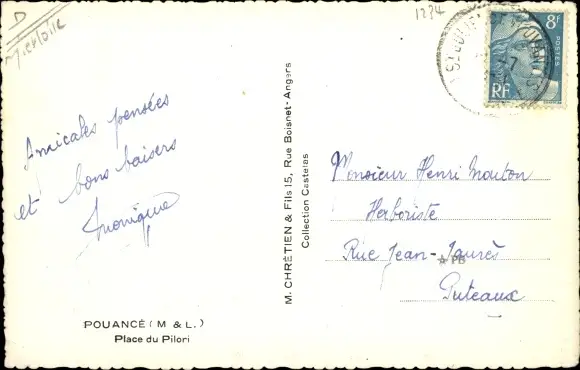 D
1234
8F
POSTES
RF
Amicales pensées
et bons baisers
Monique
M. CHRÉTIEN & Fils 15, Rue Boisnet - Angers
Collection Castelas
Monsieur Henri Mouton
Herboriste
Rue Jean-Jaurès
Puteaux
POUANCÉ (M & L.)
Place du Pilori